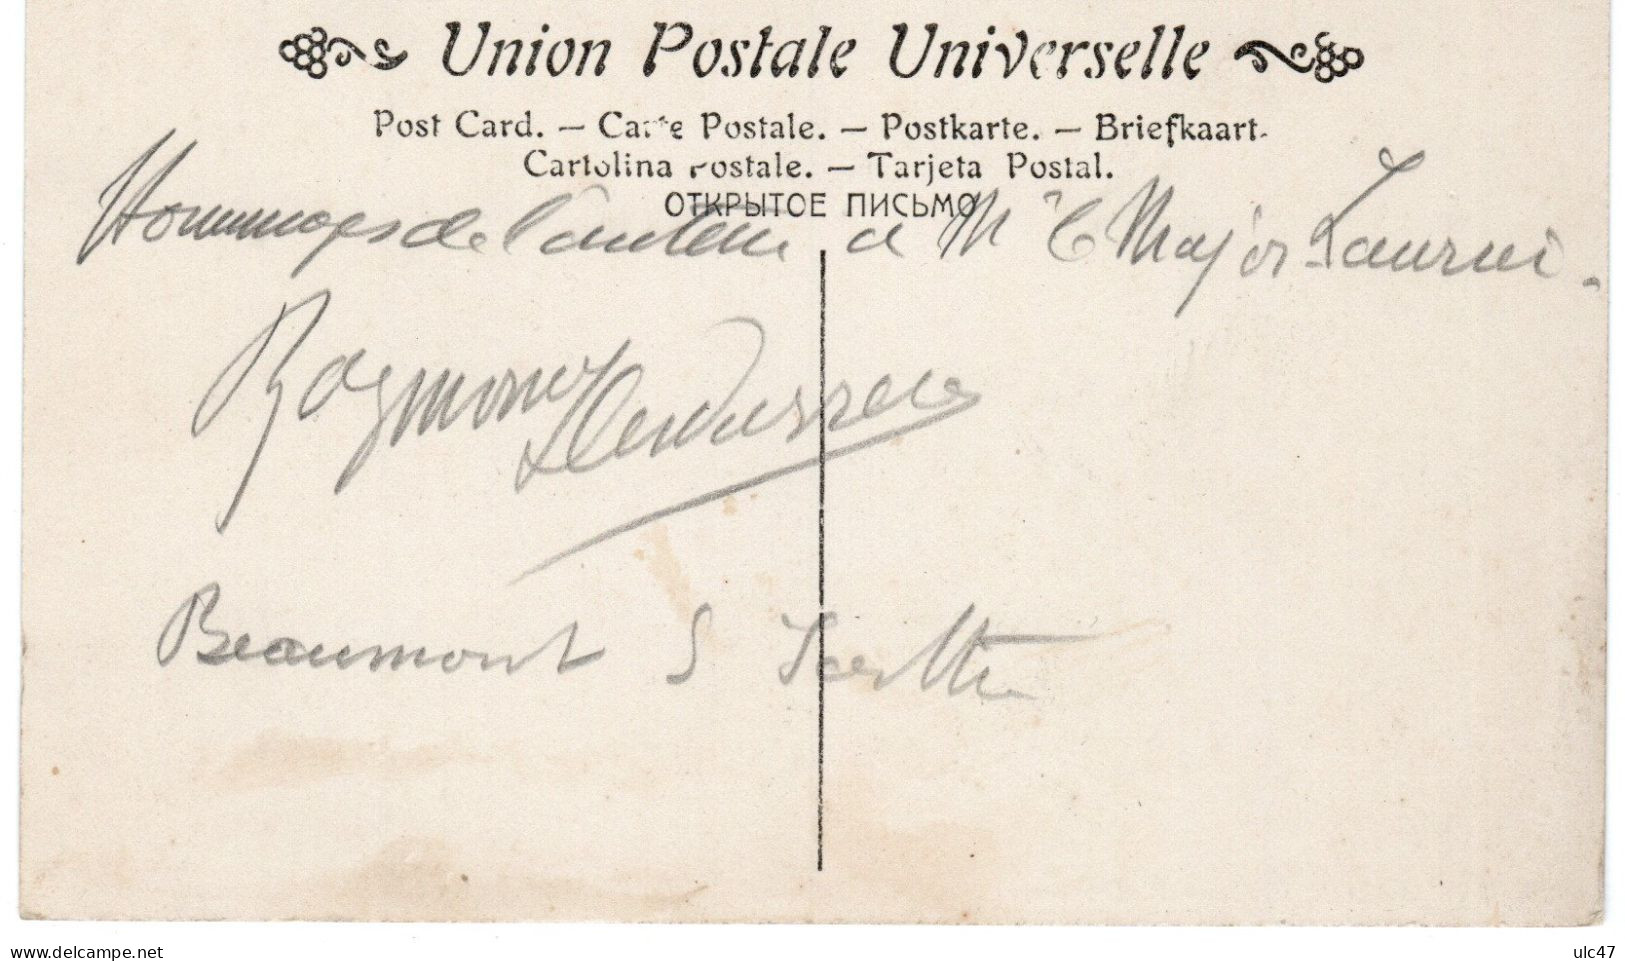 Union Postale Universelle
Post Card. — Carte Postale. — Postkarte. — Briefkaart.
Cartolina Postale. — Tarjeta Postal.
ОТКРЫТОЕ ПИСЬМО
Hommages de l'auteur a Mr le Major
Raymond
Beaumont s Sarthe
www.delcampe.net
ulc47